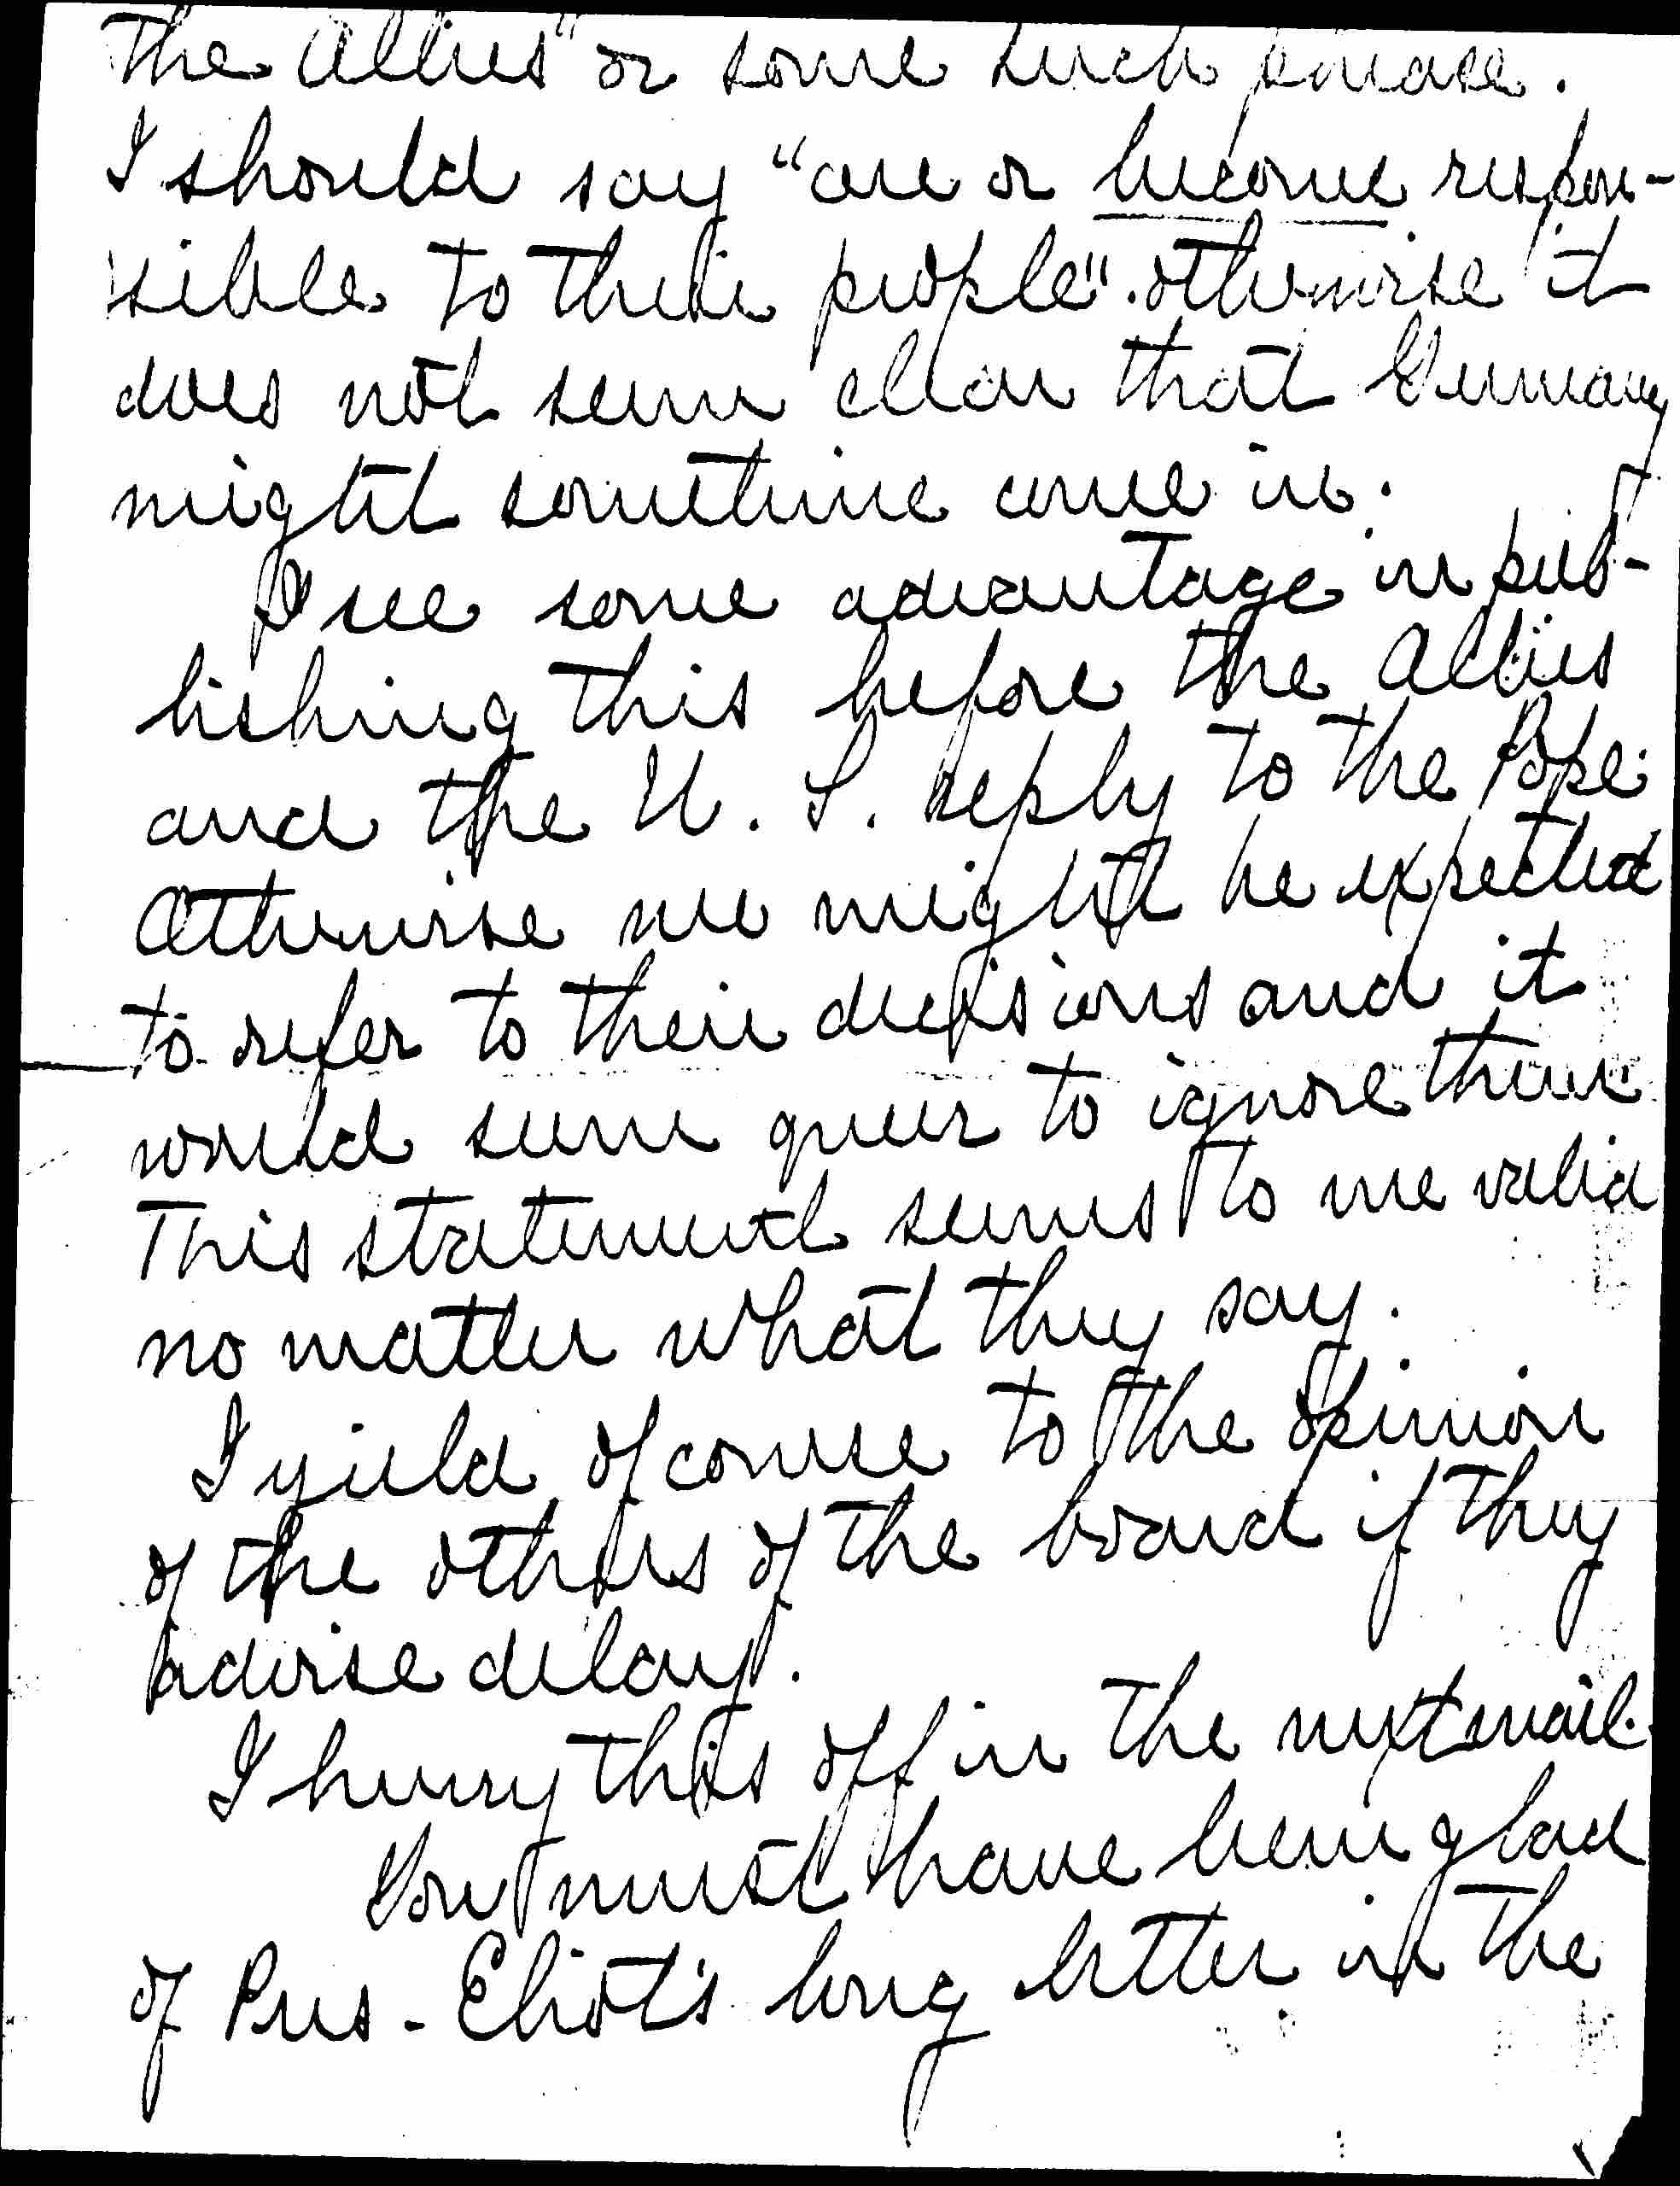 the Allies" or some such phrase.
I should say "are or become respon-
sible to their people". otherwise it
does not seem clear that Germany
might sometime come in.
I see some advantage in pub-
lishing this before the Allies
and the U. S. reply to the Pope.
Otherwise we might be expected
to refer to their decisions and it
would seem queer to ignore them
This statement seems to me valid
no matter what they say.
I yield of course to the opinion
of the others of the board if they
advise delay.
I hurry this off in the next mail.
You must have been glad
of Pres. Eliot's long letter in the